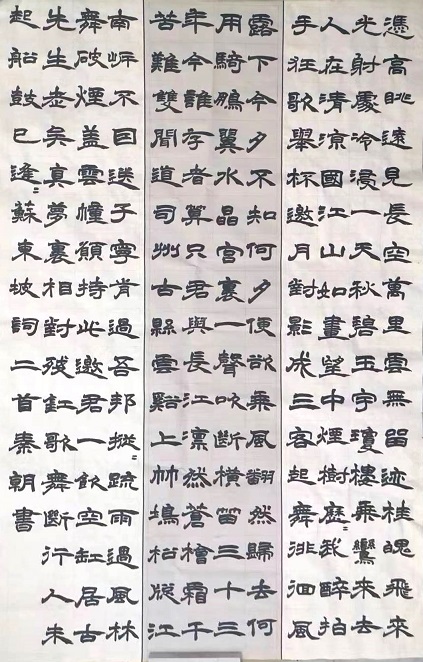 憑高眺遠見長空萬里雲無留迹桂魄飛來
光射處冷浸一天秋碧玉宇瓊樓乘鸞來去
人在清涼國江山如畫望中煙樹歷〻我醉拍
手狂歌舉杯邀月對影成三客起舞徘徊風
露下今夕不知何夕便欲乘風翻然歸去何
用騎鵬翼水晶宮裏一聲吹斷橫笛三十三
年今誰存者算只君與長江凜然蒼檜霜干
苦難雙聞道司州古縣雲谿上竹塢松窗江
南岸不因送子寧肯過吾邦摐〻疏雨過風林
舞破煙蓋雲幢願持此邀君一飲空缸居古
先生老矣真夢裏相對殘釭歌舞斷行人未
起船鼓已逢〻蘇東坡詞二首秦朝書